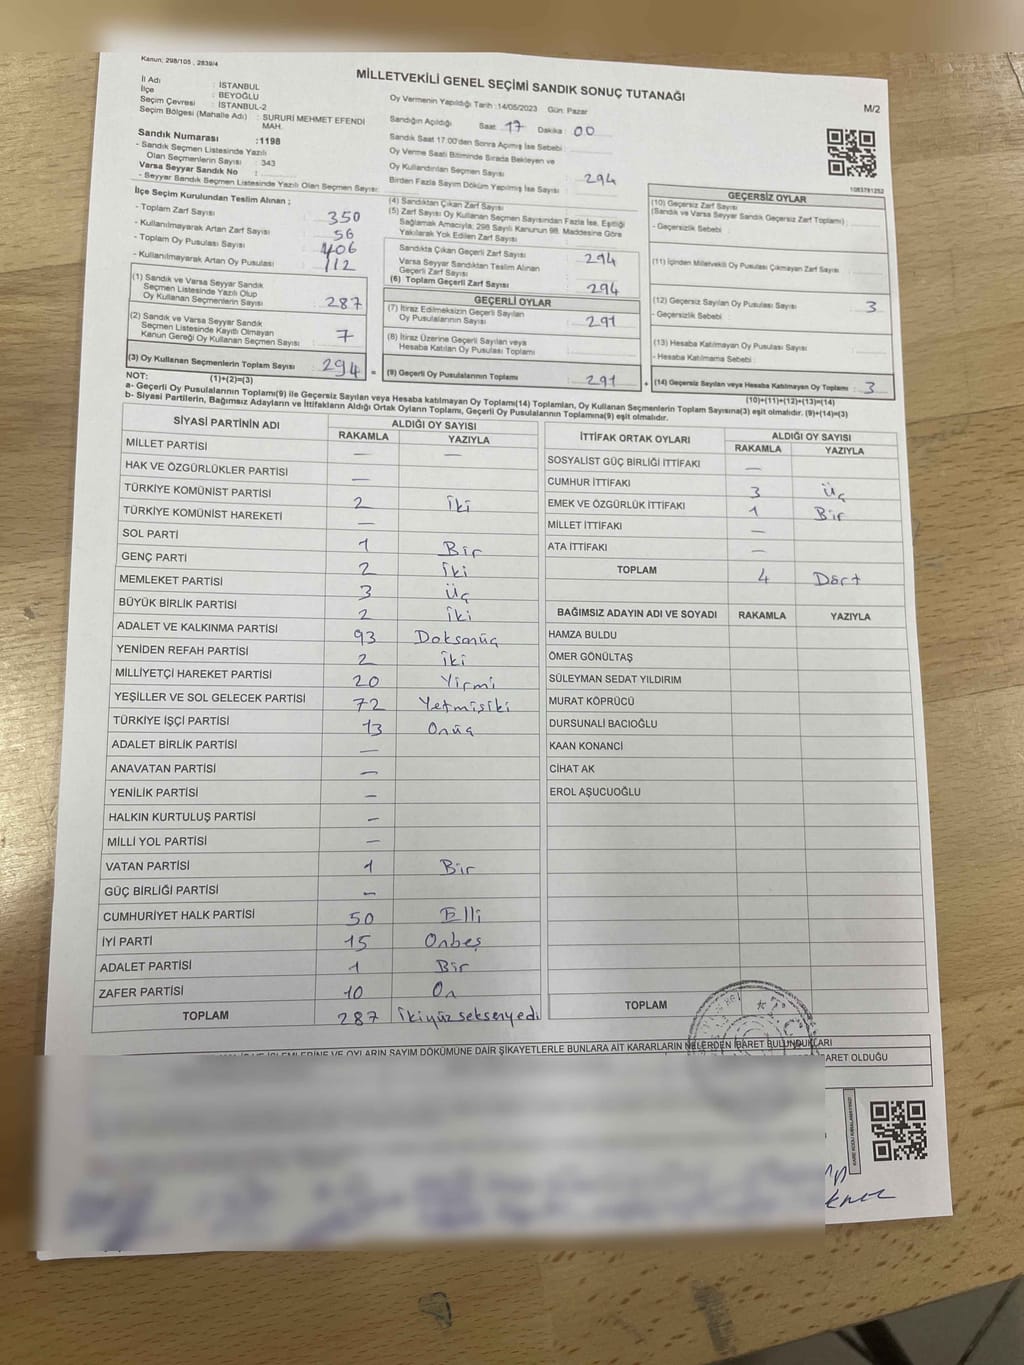 Kanun, 298/105 , 2839/4
MİLLETVEKİLİ GENEL SEÇİMİ SANDIK SONUÇ TUTANAĞI
M/2
İl Adı : İSTANBUL
İlçe : BEYOĞLU
Seçim Çevresi : İSTANBUL-2
Seçim Bölgesi (Mahalle Adı) : SURURİ MEHMET EFENDİ MAH.
Sandık Numarası :1198
- Sandık Seçmen Listesinde Yazılı
Olan Seçmenlerin Sayısı : 343
Varsa Seyyar Sandık No :
- Seyyar Sandık Seçmen Listesinde Yazılı Olan Seçmen Sayısı:
Oy Vermenin Yapıldığı Tarih :14/05/2023 Gün: Pazar
Sandığın Açıldığı Saat: 17 Dakika : 00
Sandık Saat 17.00'den Sonra Açımış İse Sebebi :
Oy Verme Saati Bitiminde Sırada Bekleyen ve
Oy Kullandırılan Seçmen Sayısı :
Birden Fazla Sayım Döküm Yapılmış İse Sayısı :
1083781252
İlçe Seçim Kurulundan Teslim Alınan ;
- Toplam Zarf Sayısı : 350
- Kullanılmayarak Artan Zarf Sayısı : 56
- Toplam Oy Pusulası Sayısı : 406
- Kullanılmayarak Artan Oy Pusulası : 112
(1) Sandık ve Varsa Seyyar Sandık
Seçmen Listesinde Yazılı Olup
Oy Kullanan Seçmenlerin Sayısı : 287
(2) Sandık ve Varsa Seyyar Sandık
Seçmen Listesinde Kayıtlı Olmayan
Kanun Gereği Oy Kullanan Seçmen Sayısı : 7
(3) Oy Kullanan Seçmenlerin Toplam Sayısı : 294
(1)+(2)=(3)
(4) Sandıktan Çıkan Zarf Sayısı : 294
(5) Zarf Sayısı Oy Kullanan Seçmen Sayısından Fazla İse, Eşitliği
Sağlamak Amacıyla; 298 Sayılı Kanunun 98. Maddesine Göre
Yakılarak Yok Edilen Zarf Sayısı :
Sandıkta Çıkan Geçerli Zarf Sayısı : 294
Varsa Seyyar Sandıktan Teslim Alınan
Geçerli Zarf Sayısı :
(6) Toplam Geçerli Zarf Sayısı : 294
GEÇERLİ OYLAR
(7) İtiraz Edilmeksizin Geçerli Sayılan
Oy Pusulalarının Sayısı : 291
(8) İtiraz Üzerine Geçerli Sayılan veya
Hesaba Katılan Oy Pusulası Toplamı :
= (9) Geçerli Oy Pusulalarının Toplamı : 291
GEÇERSİZ OYLAR
(10) Geçersiz Zarf Sayısı
(Sandık ve Varsa Seyyar Sandık Geçersiz Zarf Toplamı) :
- Geçersizlik Sebebi :
(11) İçinden Milletvekili Oy Pusulası Çıkmayan Zarf Sayısı :
(12) Geçersiz Sayılan Oy Pusulası Sayısı : 3
- Geçersizlik Sebebi :
(13) Hesaba Katılmayan Oy Pusulası Sayısı :
- Hesaba Katılmama Sebebi :
+ (14) Geçersiz Sayılan veya Hesaba Katılmayan Oy Toplamı : 3
(10)+(11)+(12)+(13)=(14)
NOT:
a- Geçerli Oy Pusulalarının Toplamı(9) ile Geçersiz Sayılan veya Hesaba katılmayan Oy Toplamı(14) Toplamları, Oy Kullanan Seçmenlerin Toplam Sayısına(3) eşit olmalıdır. (9)+(14)=(3)
b- Siyasi Partilerin, Bağımsız Adayların ve İttifakların Aldığı Ortak Oyların Toplamı, Geçerli Oy Pusulalarının Toplamına(9) eşit olmalıdır.
SİYASİ PARTİNİN ADI ALDIĞI OY SAYISI
RAKAMLA YAZIYLA
MİLLET PARTİSİ — —
HAK VE ÖZGÜRLÜKLER PARTİSİ —
TÜRKİYE KOMÜNİST PARTİSİ 2 İki
TÜRKİYE KOMÜNİST HAREKETİ —
SOL PARTİ 1 Bir
GENÇ PARTİ 2 İki
MEMLEKET PARTİSİ 3 Üç
BÜYÜK BİRLİK PARTİSİ 2 İki
ADALET VE KALKINMA PARTİSİ 93 Doksanüç
YENİDEN REFAH PARTİSİ 2 İki
MİLLİYETÇİ HAREKET PARTİSİ 20 Yirmi
YEŞİLLER VE SOL GELECEK PARTİSİ 72 Yetmişiki
TÜRKİYE İŞÇİ PARTİSİ 13 Onüç
ADALET BİRLİK PARTİSİ —
ANAVATAN PARTİSİ —
YENİLİK PARTİSİ —
HALKIN KURTULUŞ PARTİSİ —
MİLLİ YOL PARTİSİ —
VATAN PARTİSİ 1 Bir
GÜÇ BİRLİĞİ PARTİSİ —
CUMHURİYET HALK PARTİSİ 50 Elli
İYİ PARTİ 15 Onbeş
ADALET PARTİSİ 1 Bir
ZAFER PARTİSİ 10 On
TOPLAM 287 İkiyüzseksenyedi
İTTİFAK ORTAK OYLARI ALDIĞI OY SAYISI
RAKAMLA YAZIYLA
SOSYALİST GÜÇ BİRLİĞİ İTTİFAKI —
CUMHUR İTTİFAKI 3 Üç
EMEK VE ÖZGÜRLÜK İTTİFAKI 1 Bir
MİLLET İTTİFAKI —
ATA İTTİFAKI —
TOPLAM 4 Dört
BAĞIMSIZ ADAYIN ADI VE SOYADI RAKAMLA YAZIYLA
HAMZA BULDU
ÖMER GÖNÜLTAŞ
SÜLEYMAN SEDAT YILDIRIM
MURAT KÖPRÜCÜ
DURSUNALİ BACIOĞLU
KAAN KONANCİ
CİHAT AK
EROL AŞUCUOĞLU
TOPLAM
İŞLEMLERİNE VE OYLARIN SAYIM DÖKÜMÜNE DAİR ŞİKAYETLERLE BUNLARA AİT KARARLARIN NELERDEN İBARET BULUNDUKLARI
ARET OLDUĞU